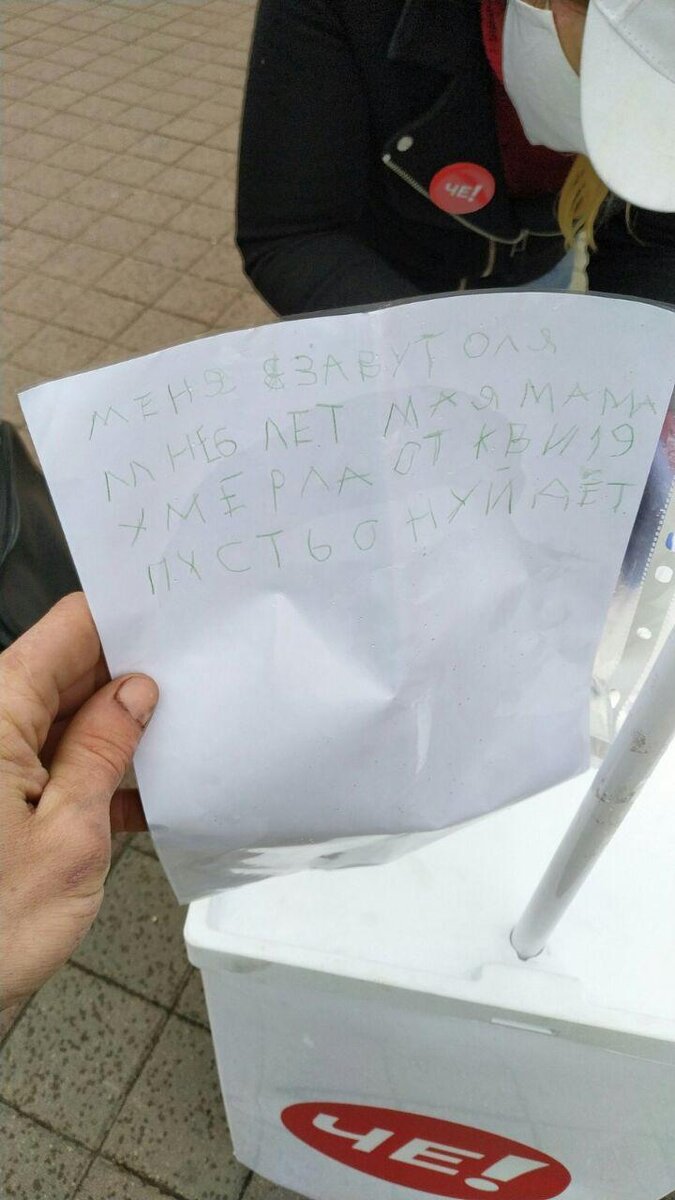 ЧЕ!
МЕНЯ ЗАВУТ ОЛЯ
МНЕ6 ЛЕТ МАЯ МАМА
УМЕРЛА ОТ КВИ19
ПУСТЬ ОНУЙДЁТ
ЧЕ!